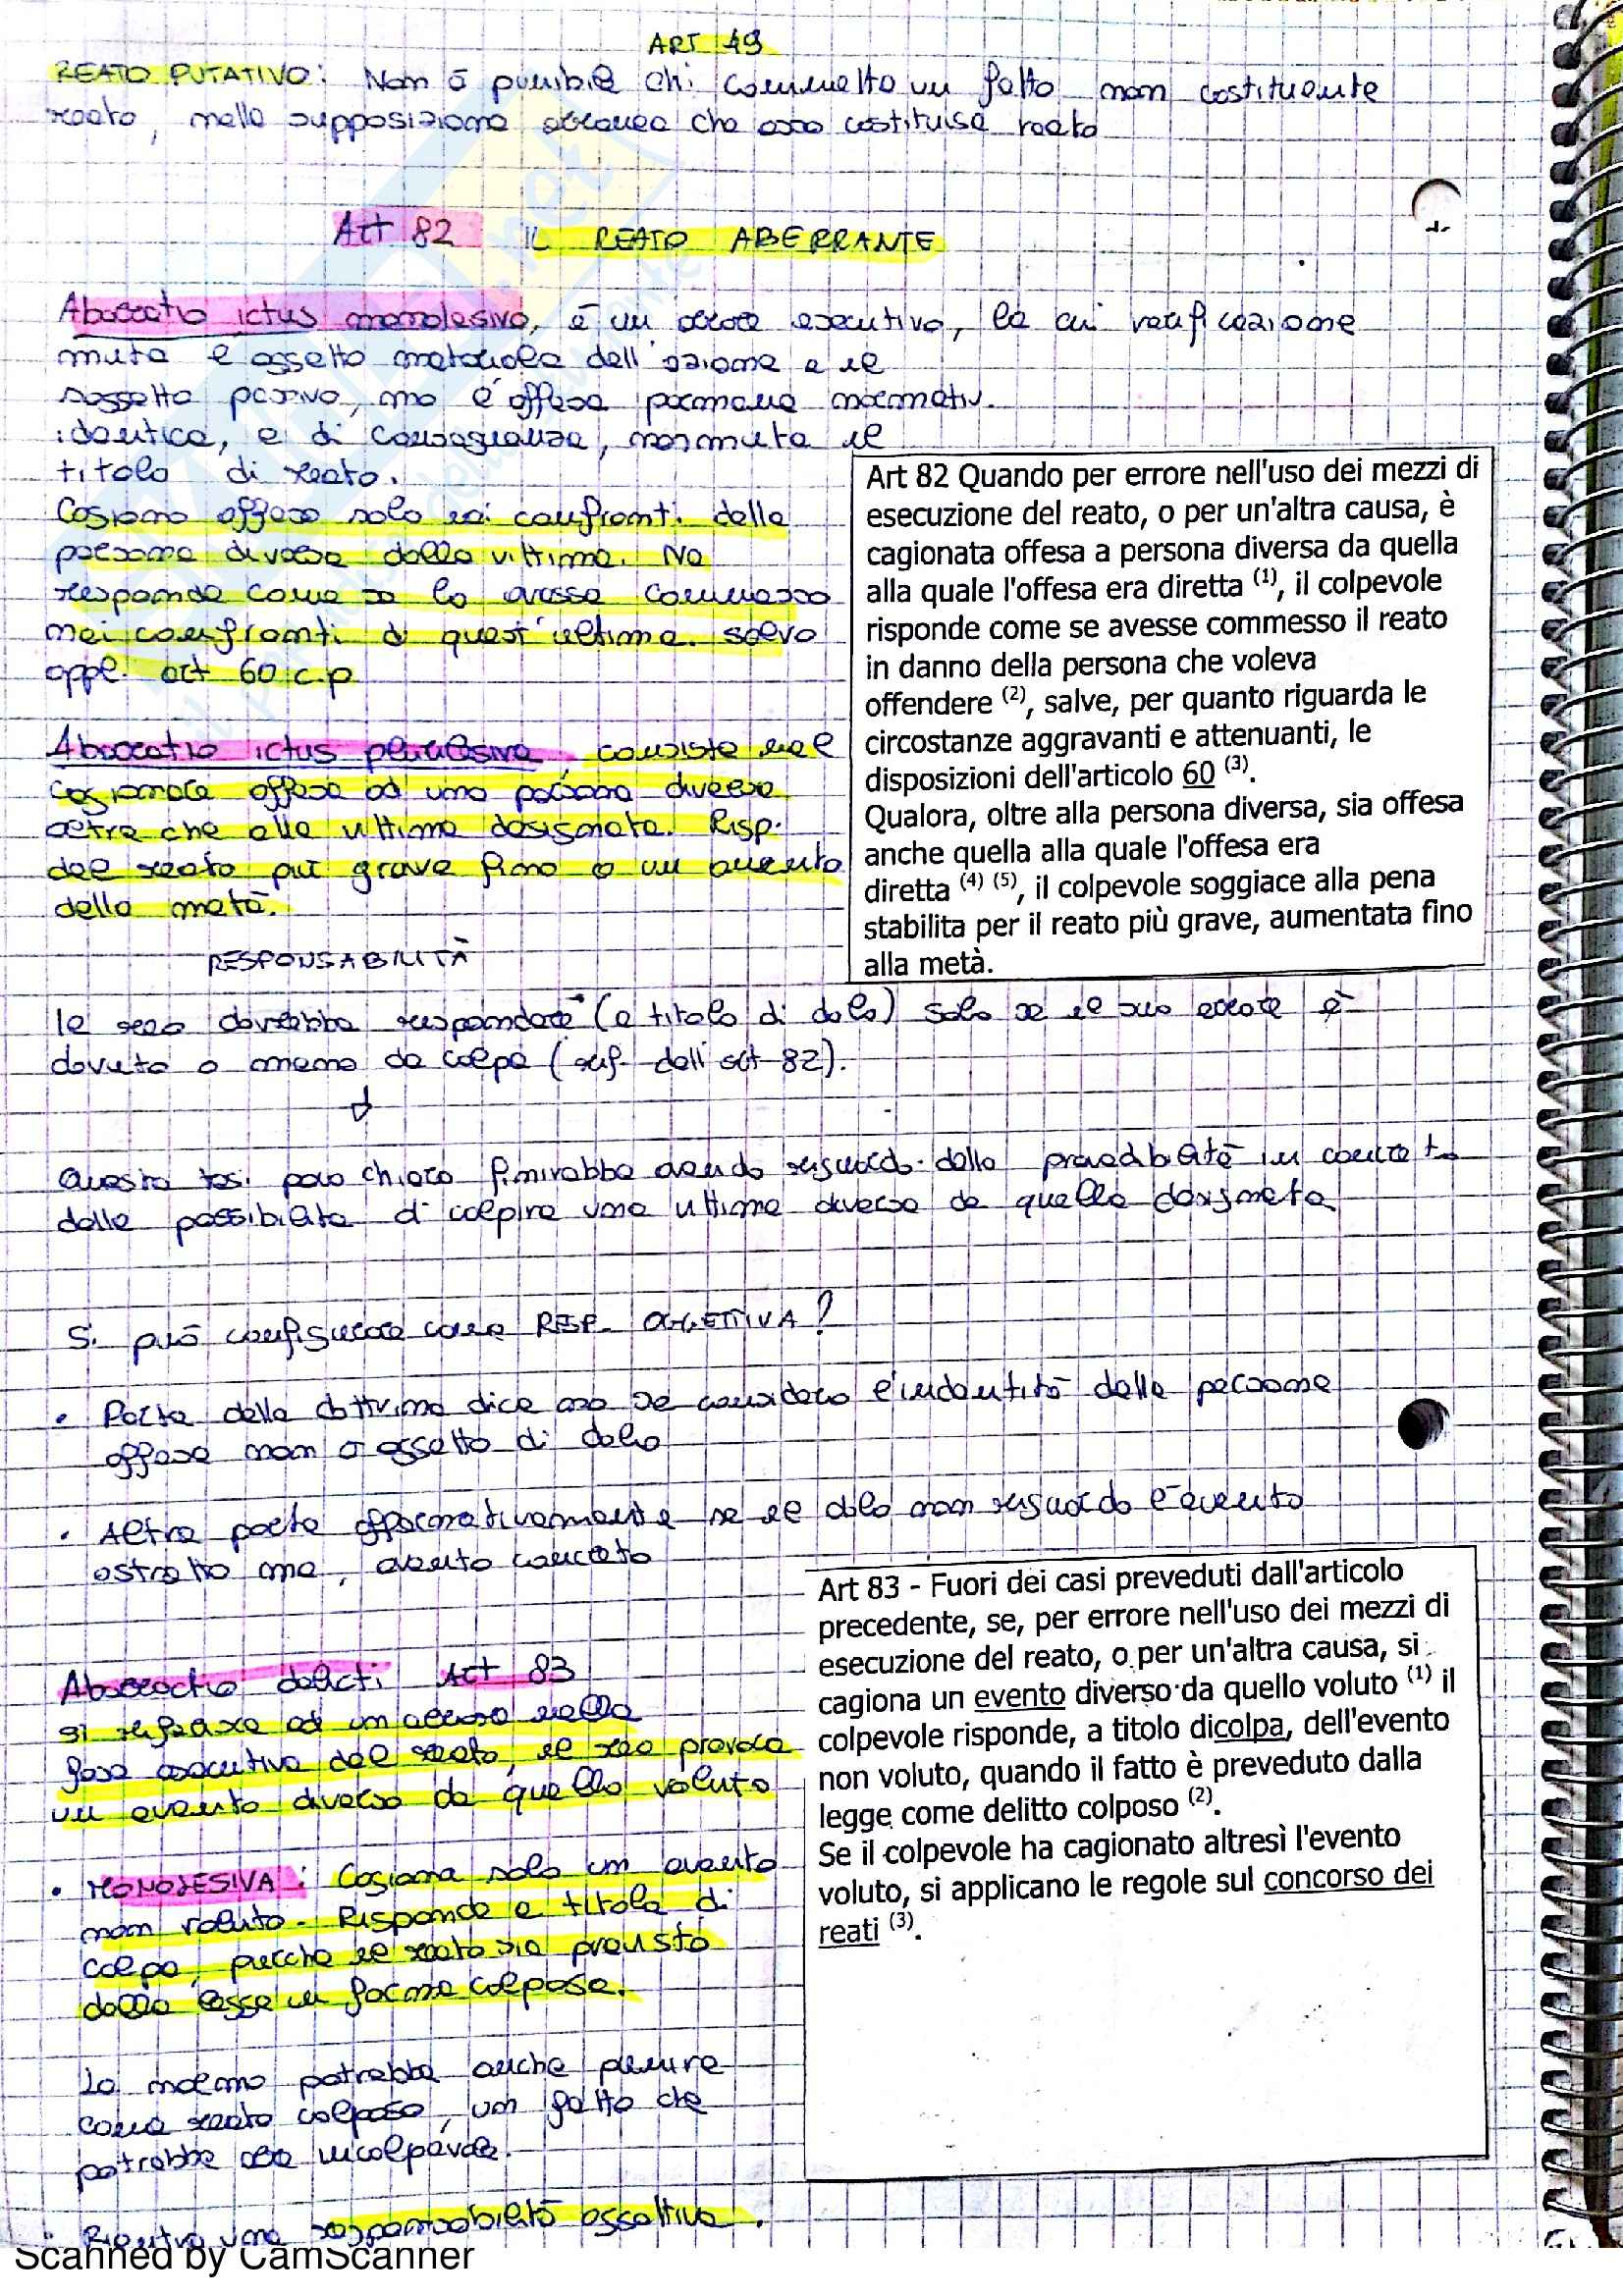 ART 49
REATO PUTATIVO: Non è punibile chi commette un fatto non costituente
reato, nella supposizione erronea che esso costituisa reato
Art 82 IL REATO ABERRANTE
Aberratio ictus monolesiva, è un errore esecutivo, la cui verificazione
muta l'assetto materiale dell'azione e il
soggetto passivo, ma l'offesa permane normativ.
identica, e di conseguenza, non muta il
titolo di reato.
Cagiono offesa solo nei confronti della
persona diversa dalla vittima. Ne
risponde come se lo avesse commesso
nei confronti di quest'ultima. salvo
appl. art 60 c.p
Art 82 Quando per errore nell'uso dei mezzi di
esecuzione del reato, o per un'altra causa, è
cagionata offesa a persona diversa da quella
alla quale l'offesa era diretta (1), il colpevole
risponde come se avesse commesso il reato
in danno della persona che voleva
offendere (2), salve, per quanto riguarda le
circostanze aggravanti e attenuanti, le
disposizioni dell'articolo 60 (3).
Qualora, oltre alla persona diversa, sia offesa
anche quella alla quale l'offesa era
diretta (4) (5), il colpevole soggiace alla pena
stabilita per il reato più grave, aumentata fino
alla metà.
Aberratio ictus plurilesiva, consiste nel
cagionare offesa ad una persona diversa
oltre che alla vittima designata. Risp.
del reato più grave fino a un aumento
della metà.
RESPONSABILITÀ
Il reo dovrebbe rispondere (a titolo di dolo) solo se il suo errore è
dovuto o meno da colpa (rif. dell'art 82).
Questa tesi però chiaro finirebbe avendo riguardo della prevedibilità in concreto
della possibilità di colpire una vittima diversa da quella designata
Si può configurare come RESP. OGGETTIVA?
• Parte della dottrina dice no se considero l'indentità della persona
offesa non oggetto di dolo
• Altra parte affermativamente se il dolo non riguarda l'evento
astratto ma, evento concreto
Aberractio delicti Art 83
si riferisce ad un errore nella
fase esecutiva del reato, il reo provoca
un evento diverso da quello voluto
• MONOLESIVA: Cagiona solo un evento
non voluto. Risponde a titolo di
colpa, purche il reato sia previsto
dalla legge in forma colposa.
La norma potrebbe anche punire
come reato colposo, un fatto che
potrebbe essere incolpevole.
• Rientra una responsabilità oggettiva.
Art 83 - Fuori dei casi preveduti dall'articolo
precedente, se, per errore nell'uso dei mezzi di
esecuzione del reato, o per un'altra causa, si
cagiona un evento diverso da quello voluto (1) il
colpevole risponde, a titolo dicolpa, dell'evento
non voluto, quando il fatto è preveduto dalla
legge come delitto colposo (2).
Se il colpevole ha cagionato altresì l'evento
voluto, si applicano le regole sul concorso dei
reati (3).
Scanned by CamScanner